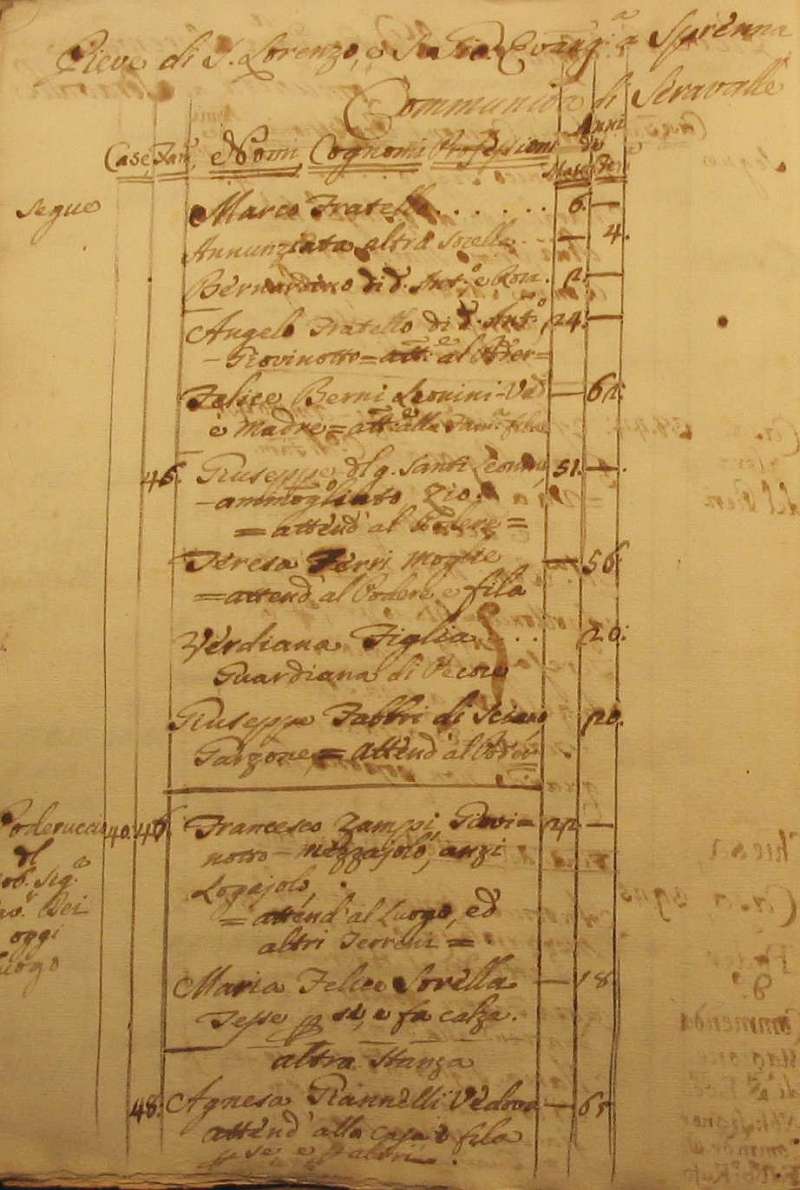 Pieve di S. Lorenzo, e S. Gio. Evang.a a Sprenna
Communità di Seravalle
Case Fam. Nomi, Cognomi Professioni Anni de
Mas. Fem.
segue Marco Fratello . . . . . . 6. —
Annunziata altra sorella — 4.
Bernardino di d. Ant.o e Rom. 2. —
Angelo Fratello di d. Ant.o 24. —
Giovinotto = att.e al Poder =
Felice Berni Leonini Ved — 62.
e Madre = att.e alla Fam.a fila
45. Giuseppe del q. Santi Leonini 51. — .
ammogliato Zio
= attend' al Podere =
Teresa Ferri moglie — 56.
= attend' al Podere e fila
Verdiana Figlia . . 20.
Guardiana di Pecore
Giuseppe Fabbri di 12.
Garzone = attend' al
Poderuccio 40. 46. Francesco Zampi, Giovi= 22. —
del notto — mezzajolo, anzi
Nob. Sig.e Logajolo,
Bei = attend' al Luogo, ed
oggi altri Terreni =
Luogo
Maria Felice Sorella — 18
Tesse p sè, e fa calza.
altra stanza
48. Agnesa Giannelli Vedova — 65
attend' alla casa e fila
p se, e p altri .